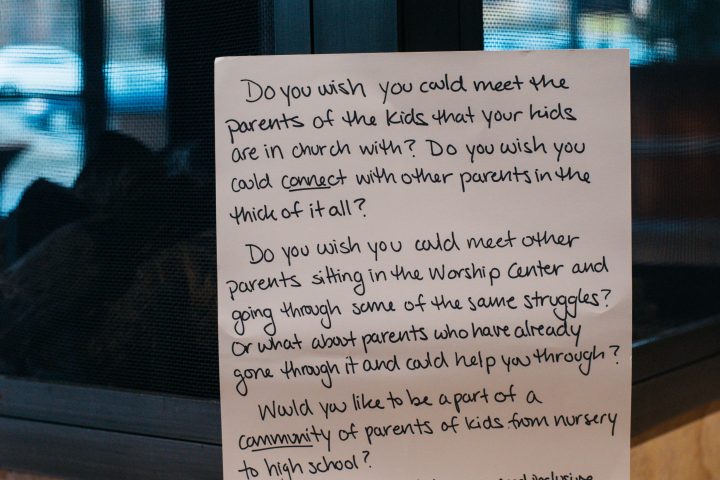 Do you wish you could meet the
parents of the kids that your kids
are in church with? Do you wish you
could connect with other parents in the
thick of it all?
Do you wish you could meet other
parents sitting in the Worship Center and
going through some of the same struggles?
Or what about parents who have already
gone through it and could help you through?
Would you like to be a part of a
community of parents of kids from nursery
to high school?